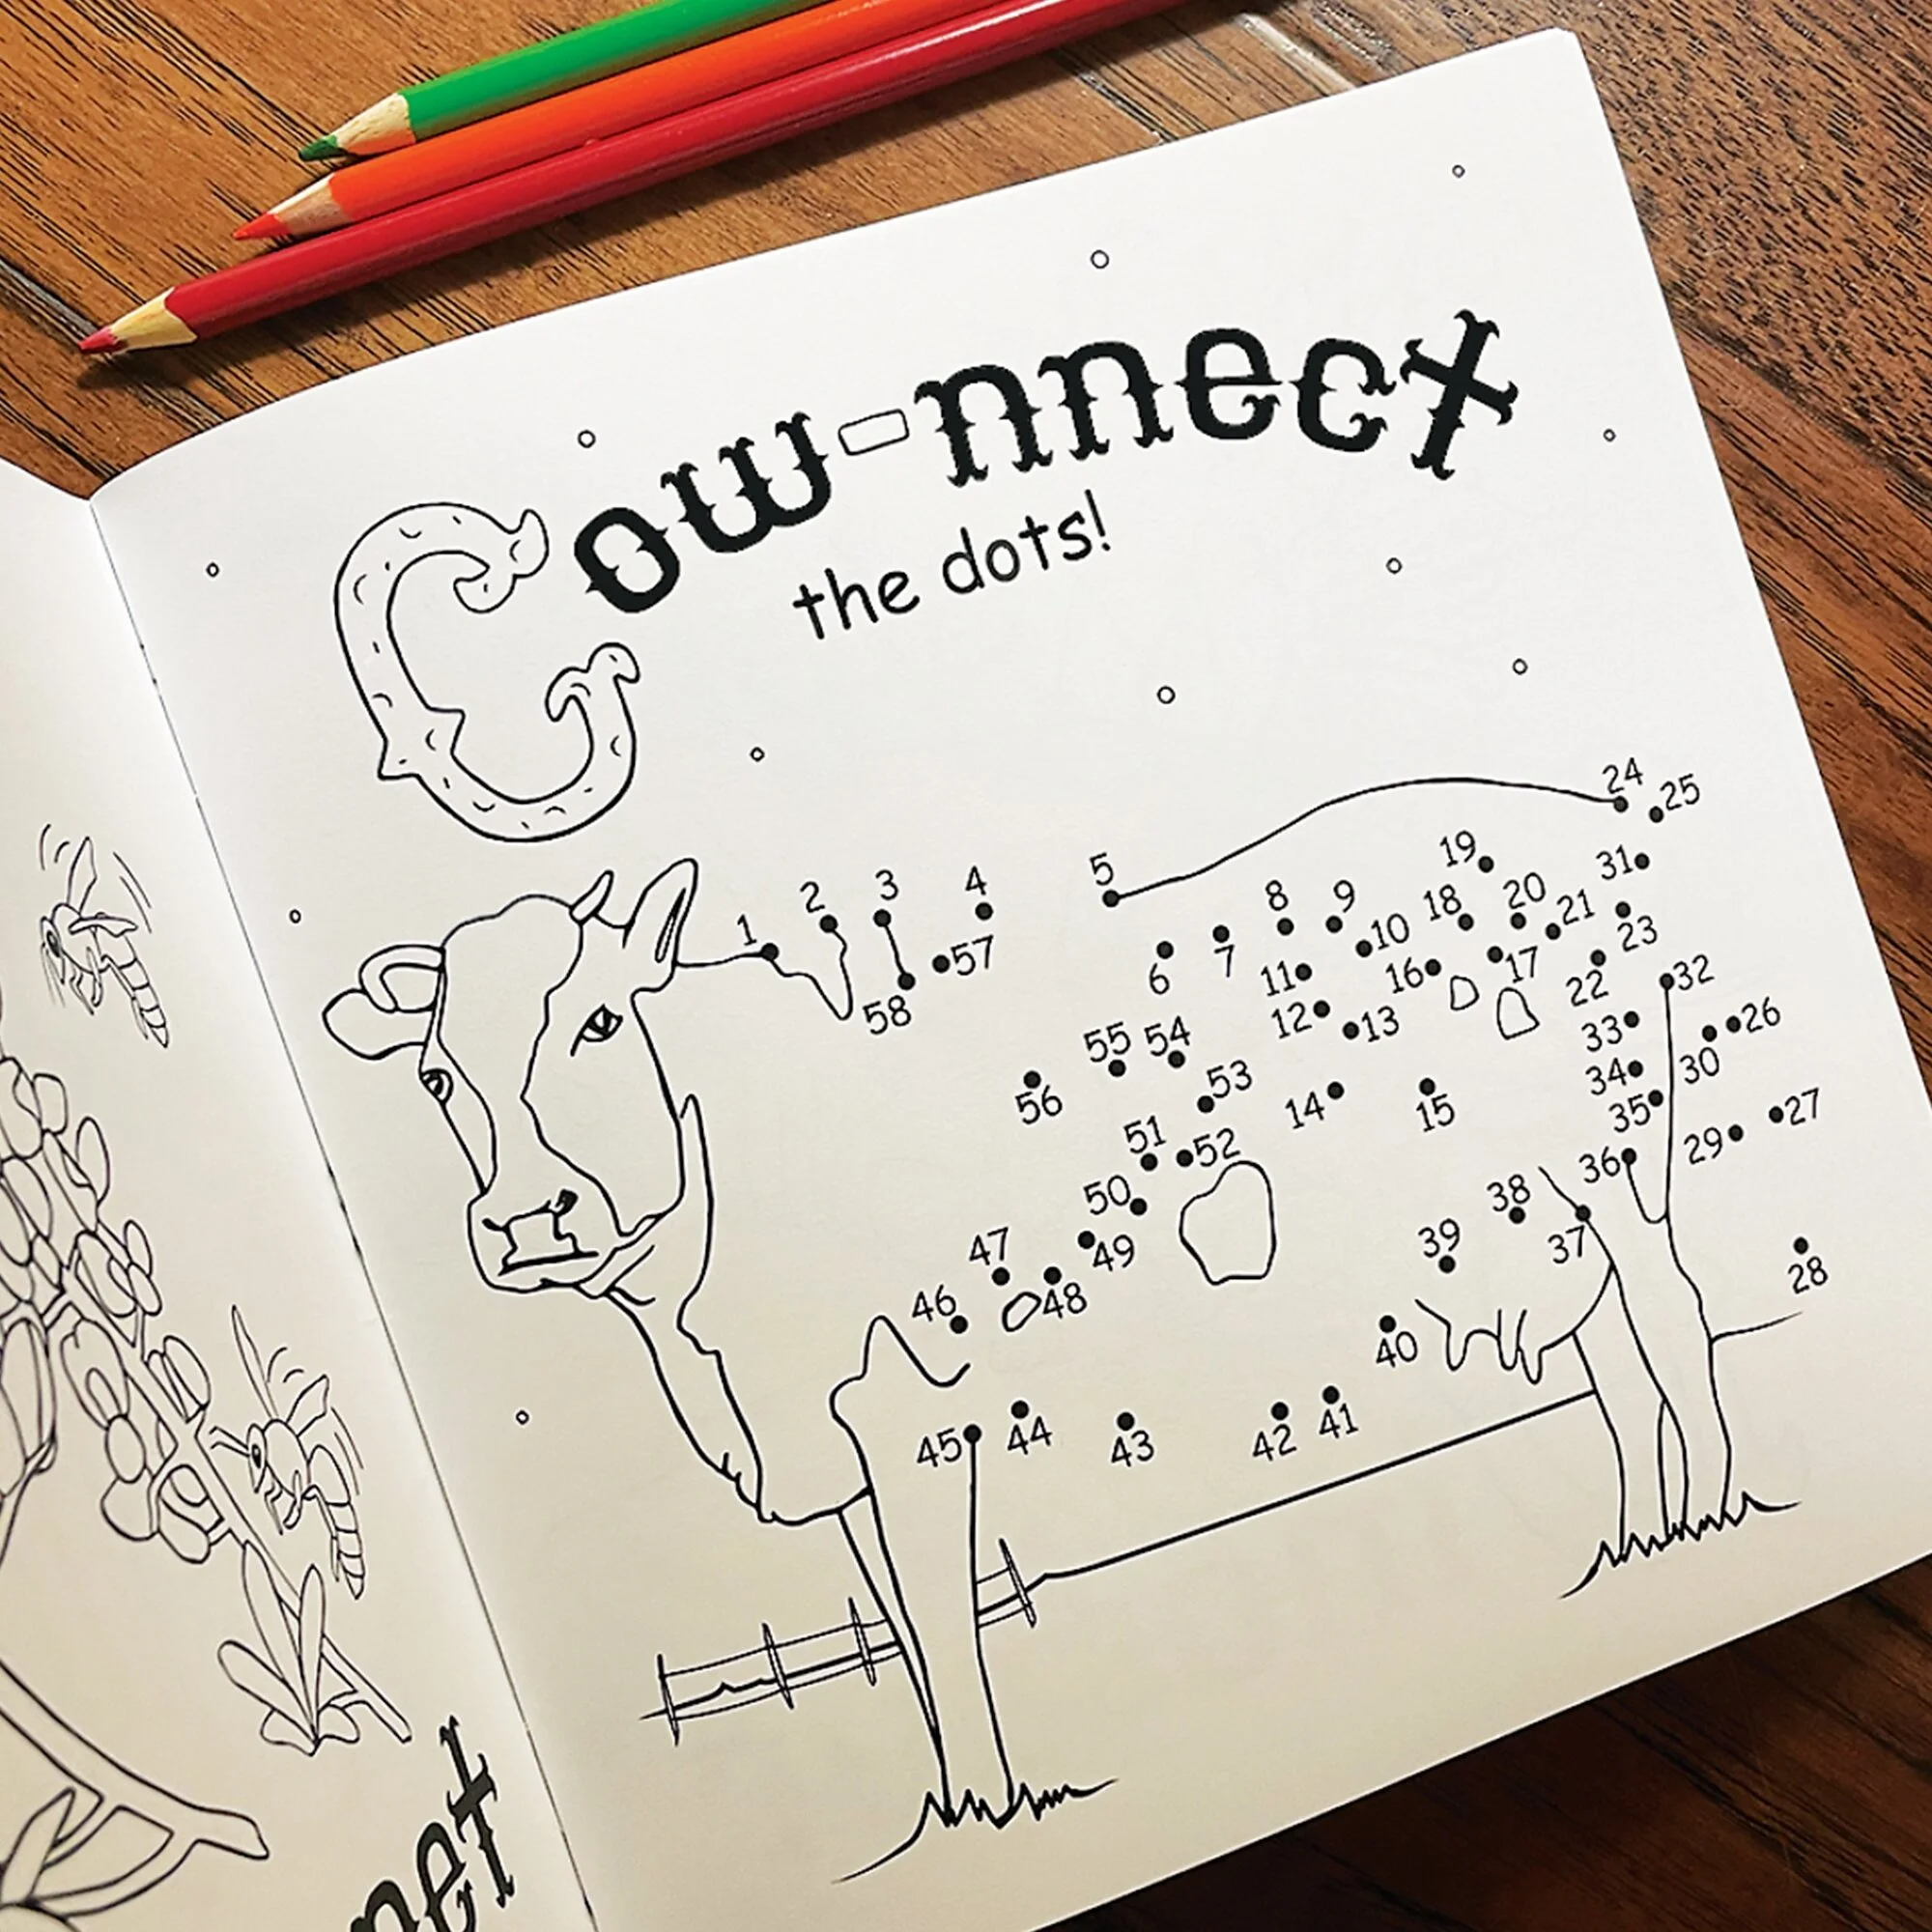 Cow-nnect
the dots!
24
25
19
31
5
2
3
4
8
9
18
20
21
1
10
23
57
6
7
11
16
17
22
32
58
12
13
33
26
55
54
34
30
56
53
14
15
35
27
51
52
29
36
50
38
47
49
39
37
46
48
28
40
45
44
43
42
41
net